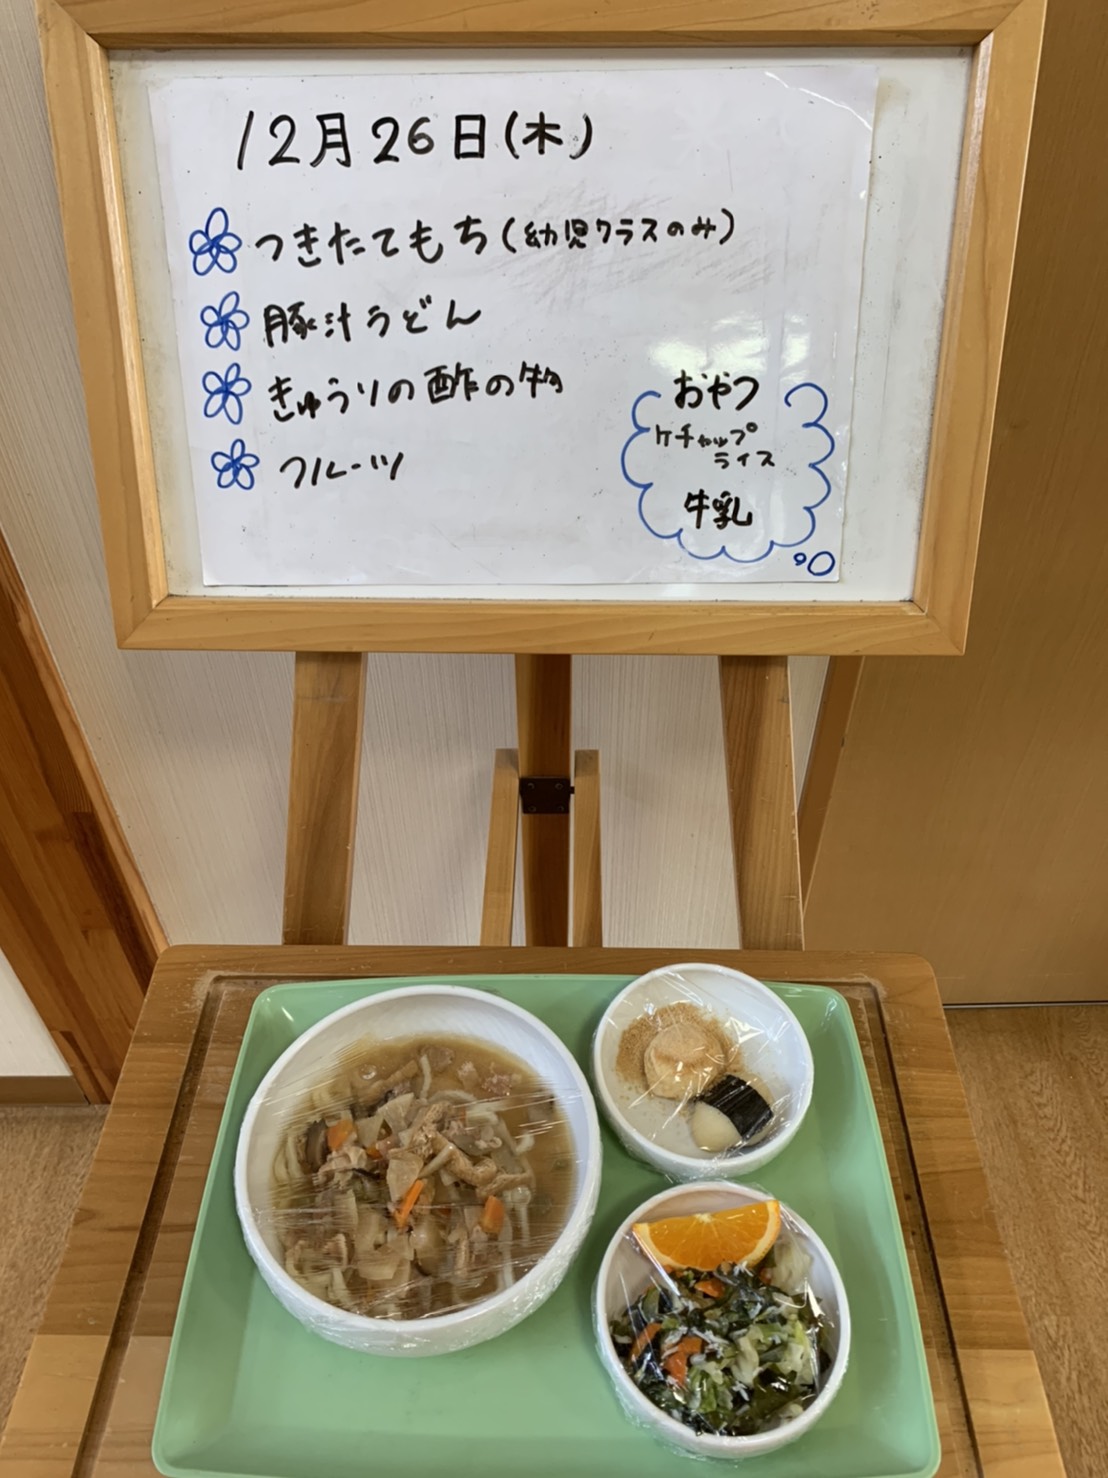 12月26日(木)
つきたてもち(幼児クラスのみ)
豚汁うどん
きゅうりの酢の物
フルーツ
おやつ
ケチャップ
ライス
牛乳